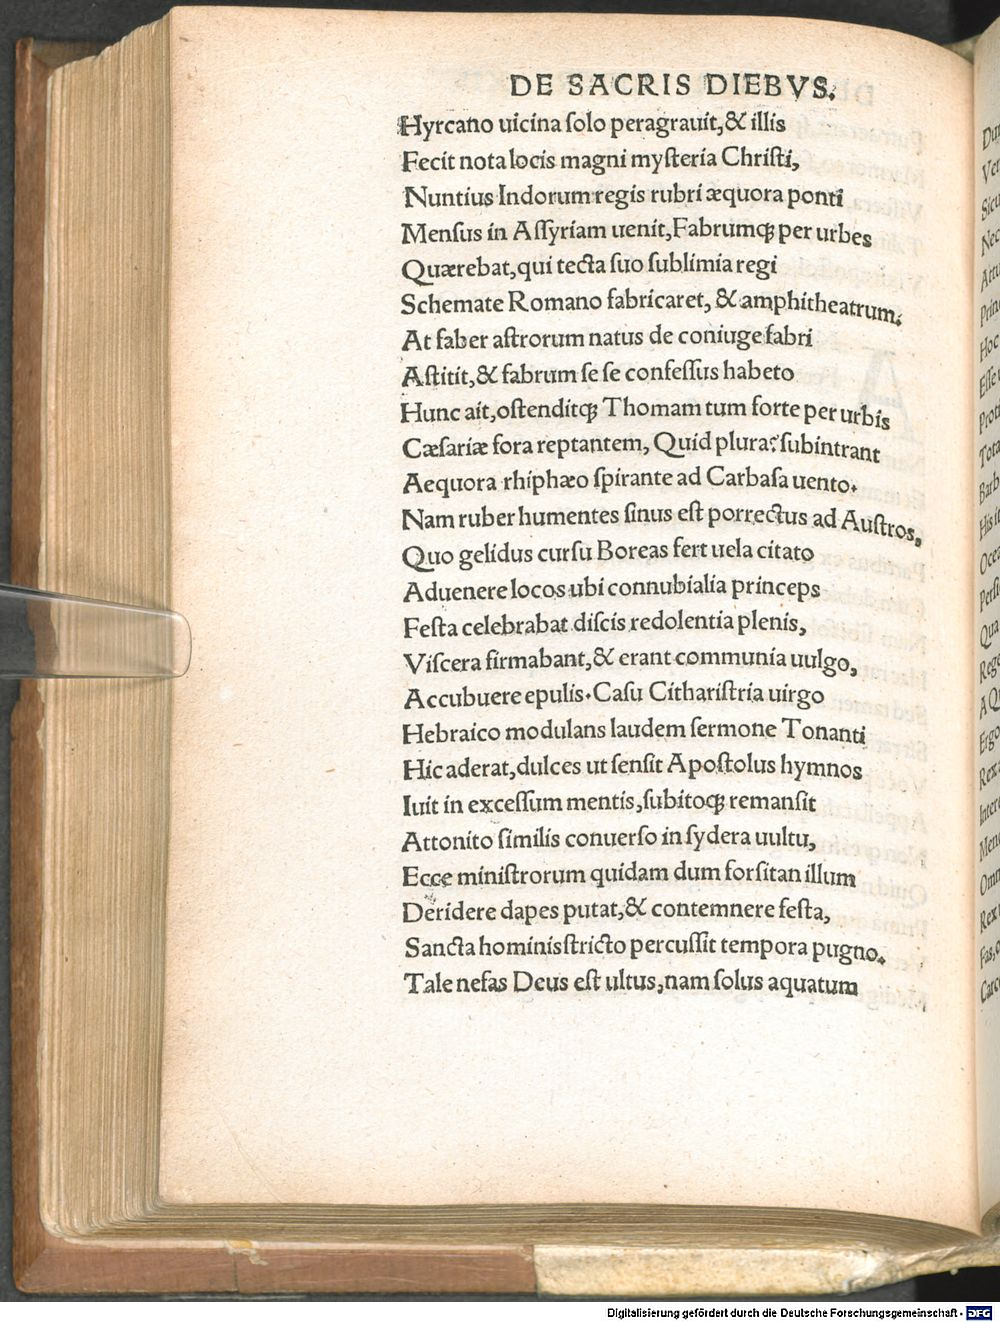 DE SACRIS DIEBVS.
Hyrcano uicina ſolo peragrauit,& illis
Fecit nota locis magni myſteria Chriſti,
Nuntius Indorum regis rubri æquora ponti
Menſus in Aſſyriam uenit,Fabrumqꝫ per urbes
Quærebat,qui tecta ſuo ſublimia regi
Schemate Romano fabricaret, & amphitheatrum.
At faber aſtrorum natus de coniuge fabri
Aſtitit,& fabrum ſe ſe confeſſus habeto
Hunc ait,oſtenditqꝫ Thomam tum forte per urbis
Cæſariæ fora reptantem, Quid plura? ſubintrant
Aequora rhiphæo ſpirante ad Carbaſa uento.
Nam ruber humentes ſinus eſt porrectus ad Auſtros,
Quo gelidus curſu Boreas fert uela citato
Aduenere locos ubi connubialia princeps
Feſta celebrabat diſcis redolentia plenis,
Viſcera firmabant,& erant communia uulgo,
Accubuere epulis.Caſu Cithariſtria uirgo
Hebraico modulans laudem ſermone Tonanti
Hic aderat,dulces ut ſenſit Apoſtolus hymnos
Iuit in exceſſum mentis,ſubitoqꝫ remanſit
Attonito ſimilis conuerſo in ſydera uultu,
Ecce miniſtrorum quidam dum forſitan illum
Deridere dapes putat,& contemnere feſta,
Sancta hominis ſtricto percuſſit tempora pugno.
Tale nefas Deus eſt ultus,nam ſolus aquatum
Digitalisierung gefördert durch die Deutsche Forschungsgemeinschaft - DFG